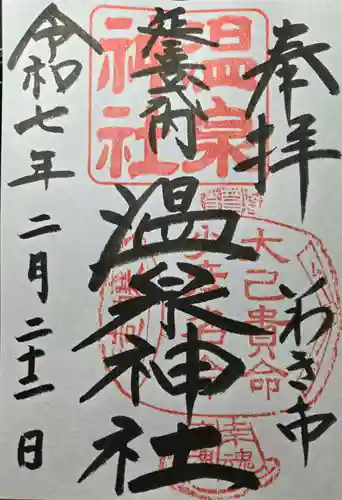 奉拝
いわき市
延喜式内
温泉神社
令和七年二月二十二日
温泉神社
大己貴命
少彦名命
幸魂